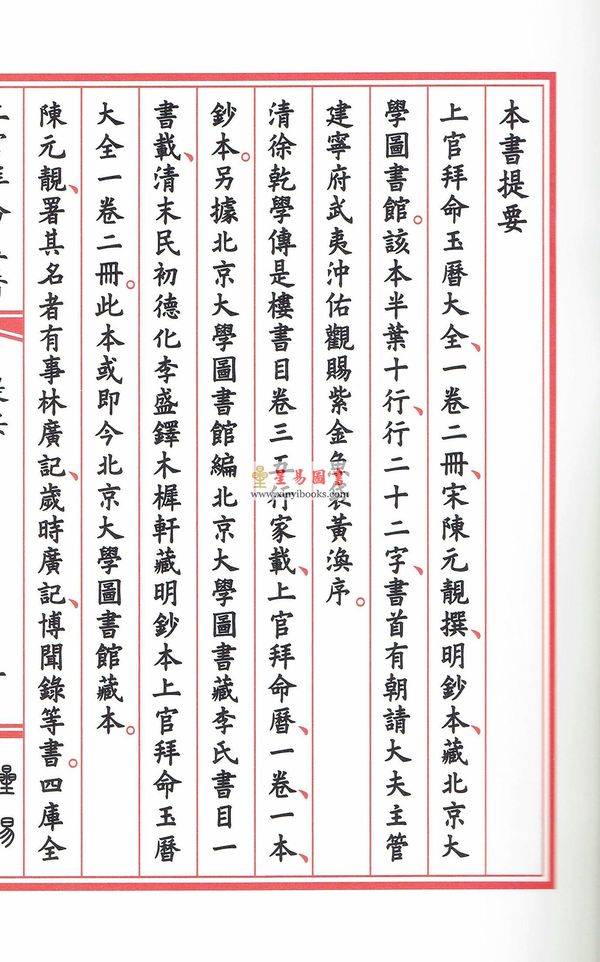 本書提要
上官拜命玉曆大全、一卷二冊、宋陳元靚撰、明鈔本、藏北京大
學圖書館。該本半葉十行、行二十二字、書首有朝請大夫主管
建寧府武夷沖佑觀賜紫金魚袋黃渙序。
清徐乾學傳是樓書目卷三五行家載、上官拜命曆、一卷、一本、
鈔本。另據北京大學圖書館編北京大學圖書藏李氏書目一
書載、清末民初德化李盛鐸木樨軒藏明鈔本上官拜命玉曆
大全一卷二冊。此本或即今北京大學圖書館藏本。
陳元靚、署其名者有事林廣記、歲時廣記、博聞錄等書。四庫全
星易圖書
www.xinyibooks.com
星易